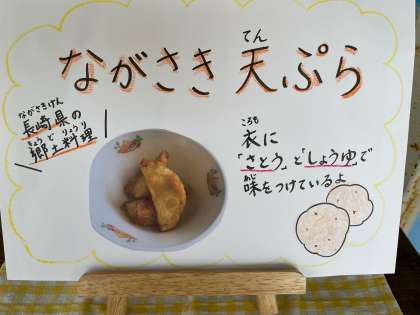 ながさき天ぷら
てん
ながさきけん
長崎県の
きょうどりょうり
郷土料理
ころも
衣に
「さとう」と「しょうゆ」で
あじ
味をつけているよ